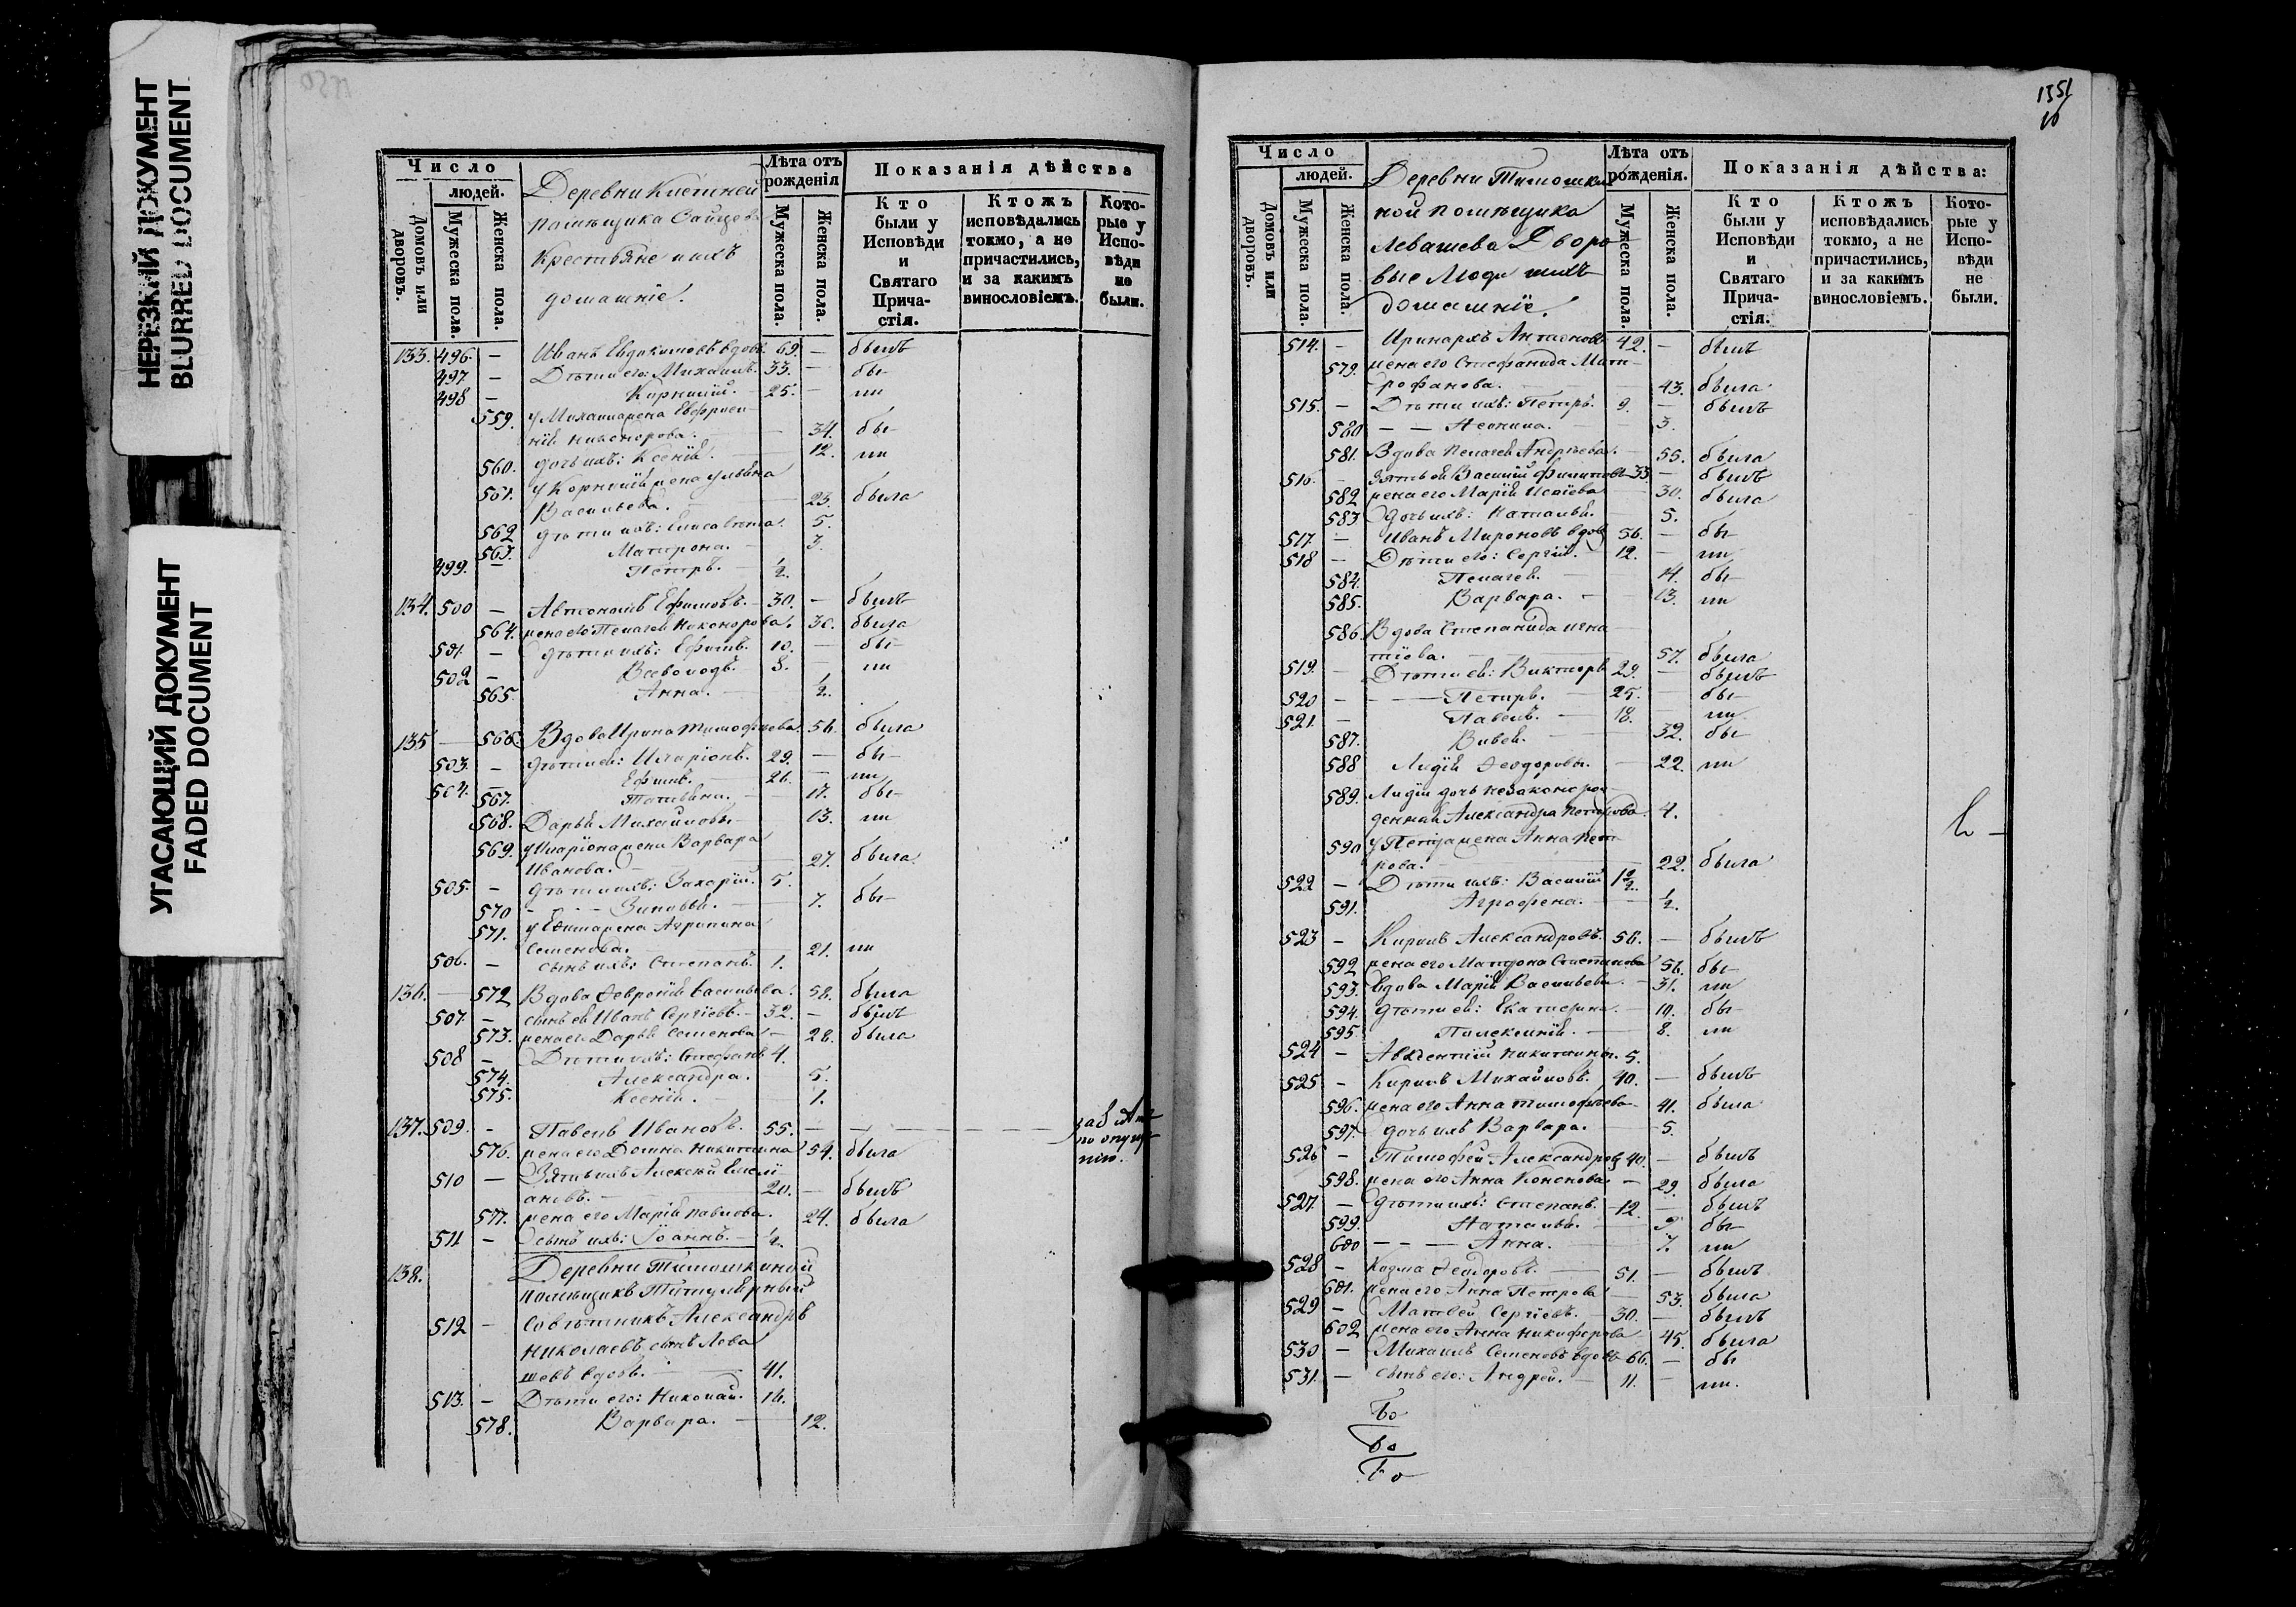 НЕРЕЗКИЙ ДОКУМЕНТ
BLURRED DOCUMENT
УГАСАЮЩИЙ ДОКУМЕНТ
FADED DOCUMENT
Число
людей.
Домовъ или дворовъ.
Мужеска пола.
Женска пола.
Деревни
помѣщика
Крестьяне и ихъ
домашніе.
Лѣта отъ рожденія
Мужеска пола.
Женска пола.
Показанія дѣйства
Кто были у Исповѣди и Святаго Прича-стія.
Ктожъ исповѣдались токмо, а не причастились, и за какимъ винословіемъ.
Кото-рые у Испо-вѣди не были.
133. 496. – Иванъ Евдокимовъ вдовъ. 69. – былъ
497 – Дѣти его: Михаилъ. 33. – бы–
498 – Корнилій. – 25. – ли
559. у Михаила жена Евфроси–
нія Никонорова. – 34. бы–
560. дочь ихъ: Ксенія. – 12. ли
561. у Корнилія жена Ульяна
Васильева. – 23. была
562 дѣти ихъ: Елисавета. 5.
563. Матрона. – 3.
499. – Петръ. – 1/2.
134. 500 – Автономъ Ефимовъ. – 30. – былъ
564. жена его Пелагея Никонорова. 30. была
501. – дѣти ихъ: Ефимъ. 10. – бы–
502 – Всеволодъ. – 8. – ли
565. Анна. – 1/2.
135 – 566. Вдова Ирина Тимофеева. 56. была
503. – дѣти ея: Иларіонъ. 29. – бы–
504. – Ефимъ. – 26. – ли
567. Татьяна. – 17. бы–
568. Дарья Михайловы – 13. ли
569. у Иларіона жена Варвара
Иванова. – 27. была
505. – дѣти ихъ: Захарій. 5.
570 – – – Зиновья. – 7. бы–
571. у Ефима жена Агрипина
Семенова. – 21. ли
506. – сынъ ихъ: Степанъ. 1.
136. – 572 Вдова Февронія Васильева. 58. была
507. – сынъ ея Иванъ Сергіевъ. – 32. – былъ
573. жена его Дарья Семенова. – 28. была
508 – Дѣти ихъ: Стефанъ 4.
574. Александра. 5.
575. Ксенія. – 1.
137. 509. – Павелъ Ивановъ. 55. – – – – –
576. жена его Домна Никитина 54. была
510 – Зять ихъ Алексѣй Емелі–
ановъ. – 20. – былъ
577. жена его Марія Павлова. 24. была
511 – Сынъ ихъ: Іоаннъ. – 1/2.
138. Деревни Тимошкиной
помѣщикъ Титулярный
512 – Совѣтникъ Александръ
Николаевъ сынъ Лева
шовъ вдовъ. – 41.
513. – Дѣти его: Николай. 14.
578. Варвара. – 12.
1351
Число
людей.
Домовъ или дворовъ.
Мужеска пола.
Женска пола.
Деревни Тимошки
ной помѣщика
Левашева Дворо
вые Люди и ихъ
домашніе.
Лѣта отъ рожденія.
Мужеска пола.
Женска пола.
Показанія дѣйства:
Кто были у Исповѣди и Святаго Прича-стія.
Ктожъ исповѣдались токмо, а не причастились, и за какимъ винословіемъ.
Кото-рые у Испо-вѣди не были.
514. – Иринархъ Антоновъ 42. – былъ
579. жена его Стефанида Мит–
рофанова. – 43. была
515. – Дѣти ихъ: Петръ. 9. – былъ
580 – – 3.
581. Вдова Пелагея Андреева. 55. была
516. – Зять ея Василій Филиповъ 33. – былъ
582 жена его Марія – 30. была
583 Дочь ихъ: Наталья. 5.
517. – Иванъ Мироновъ вдов 56. – бы–
518 – Дѣти его: Сергій. – 12. – ли
584. Пелагея. – 14. бы–
585. Варвара. – 13. ли
586. Вдова Степанида Игна
тіева. – 57. была
519. – Дѣти ея: Викторъ 29. – былъ
520 – – – Петръ. – 25. – бы–
521. – Павелъ. – 18. – ли
587. – 32. бы–
588 Лидія Феодоровы. – 22. ли
589. Лидіи дочь незаконорож
денная Александра Петрова. 4.
590 у Петра жена Анна Пет–
рова. – 22. была
522 – Дѣти ихъ: Василій
591. Агрофена. – 1/2.
523 – Кирилъ Александровъ. 56. – былъ
592 жена его Матрона Степанова 56. бы–
593. Вдова Марія Васильева. – 31. ли
594. дѣти ея: Екатерина. – бы–
595. – 8. ли
524 – Авксентій Никитины. 5.
525 – Кирилъ Михайловъ. 40. – былъ
596. жена его Анна Тимофеева – 41. была
597. дочь ихъ Варвара. – 5.
526 – Тимофей Александров 40. – былъ
598. жена его Анна Кононова. – 29. была
527. – дѣти ихъ: Степанъ. – 12. – былъ
599. Наталья. – 9 бы–
600 – – – Анна. – 7. ли
528 – Козма Феодоровъ. – 51. – былъ
601. жена его Анна Петрова 53. была
529 – Матвей Сергіевъ. – 30. – былъ
602 жена его Анна Никифорова 45. была
530 – Михаилъ Семеновъ вдовъ 66. – бы
531. – сынъ его: Андрей. – 11. – ли.